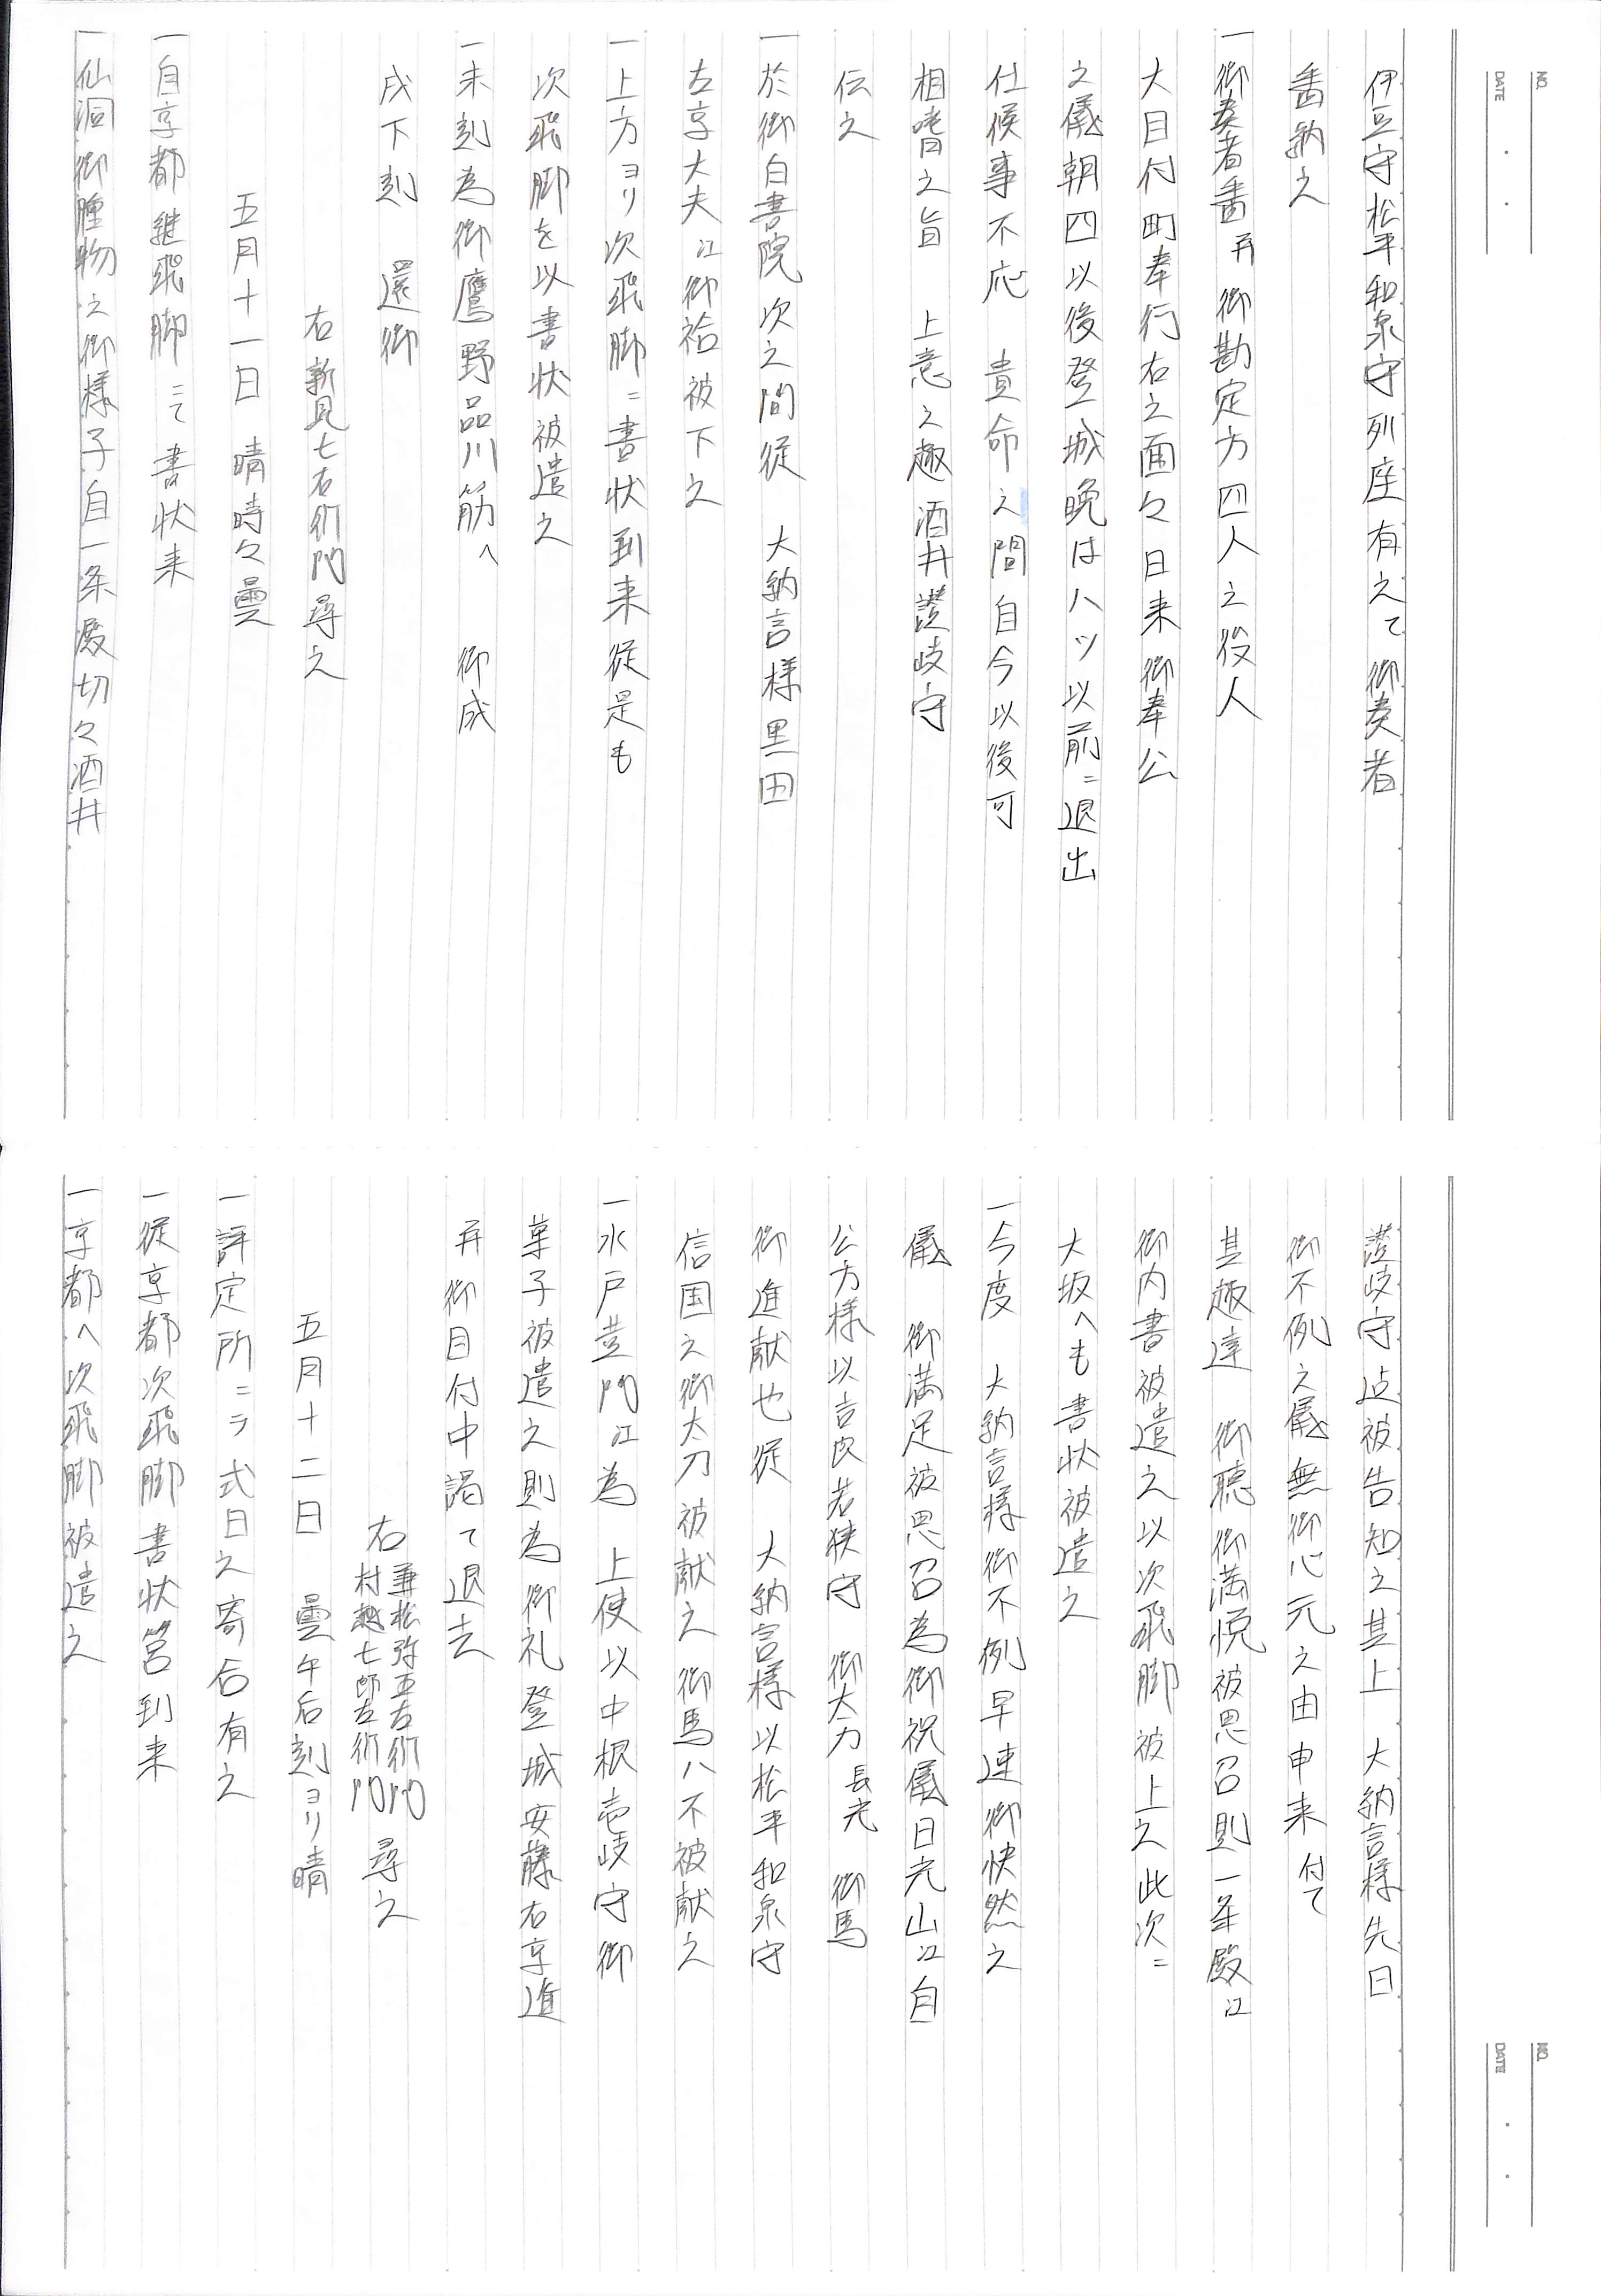 NO.
DATE
伊豆守松平和泉守列座有之て御奏者
番納之
一御奏者番并御勘定方四人之役人
大目付町奉行右之面々日来御奉公
之儀朝四以後登城晩はハツ以前ニ退出
仕候事不応　貴命之間自今以後可
相嗜之旨　上意之趣酒井讃岐守
伝之
一於御白書院次之間従　大納言様黒田
右京大夫江御袷被下之
一上方ヨリ次飛脚ニ書状到来従是も
次飛脚を以書状被遣之
一未刻為御鷹野品川筋へ　御成
戌下刻　還御
右新見七右衛門尋之
五月十一日　晴時々曇
一自京都継飛脚ニて書状来
一仙洞御腫物之御様子自一条殿切々酒井
讃岐守迠被告知之其上　大納言様先日
御不例之儀無御心元之由申来付て
其趣達　御聴御満悦被思召則一条殿江
御内書被遣之以次飛脚被上之此次ニ
大坂へも書状被遣之
一今度　大納言様御不例早速御快然之
儀　御満足被思召為御祝儀日光山江自
公方様以吉良若狭守　御太刀長光　御馬
御進献也従　大納言様以松平和泉守
信国之御太刀被献之御馬ハ不被献之
一水戸黄門江為　上使以中根壱岐守御
菓子被遣之則為御礼登城安藤右京進
并御目付中謁て退去
右兼松弥五左衛門
村越七郎左衛門尋之
五月十二日　曇午后刻ヨリ晴
一評定所ニテ式日之寄合有之
一従京都次飛脚書状筥到来
一京都へ次飛脚被遣之
NO.
DATE